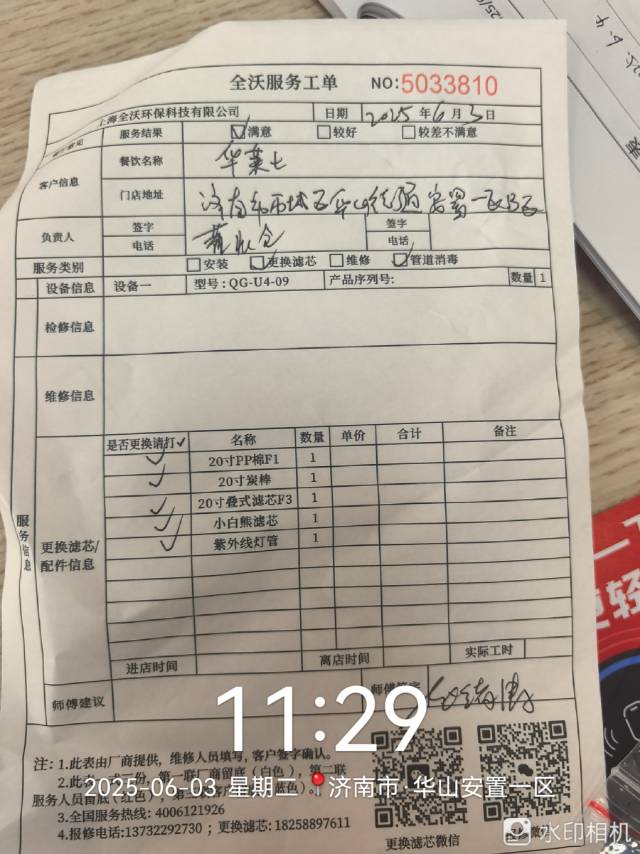 全沃服务工单 NO:5033810
上海全沃环保科技有限公司 日期 2025年6月3日
服务结果 ☑满意 □较好 □较差不满意
客户信息 餐饮名称 华莱士
门店地址 济南市历城区华山街道安置一区
负责人 签字 签字
电话 电话
服务类别 □安装 ☑更换滤芯 □维修 ☑管道消毒
设备信息 设备一 型号:QG-U4-09 产品序列号: 数量 1
检修信息
维修信息
服务信息
更换滤芯/配件信息
是否更换请打✓ 名称 数量 单价 合计 备注
✓ 20寸PP棉F1 1
✓ 20寸炭棒 1
✓ 20寸叠式滤芯F3 1
✓ 小白熊滤芯 1
✓ 紫外线灯管 1
进店时间 离店时间 实际工时
师傅建议
11:29
注:1.此表由厂商提供,维修人员填写,客户签字确认。
2.此表一式三份,第一联厂商留底(白色),第二联
服务人员留底(红色),
2025-06-03 星期二 📍济南市·华山安置一区
3.全国服务热线:4006121926
4.报修电话:13732292730;更换滤芯:18258897611
更换滤芯微信
水印相机